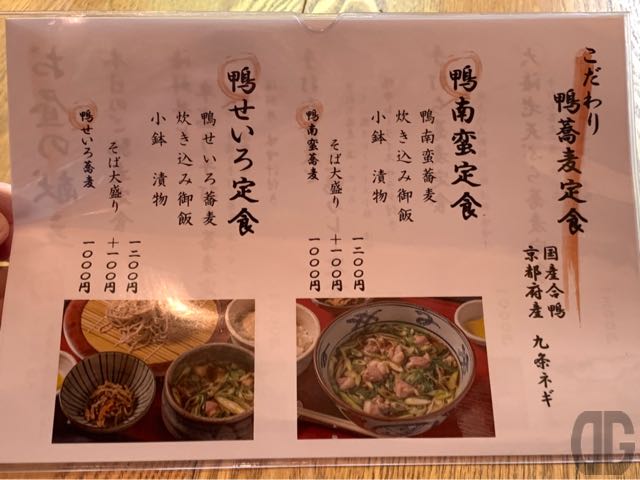 こだわり
鴨蕎麦定食
国産合鴨
京都府産 九条ネギ
鴨南蛮定食
鴨南蛮蕎麦
炊き込み御飯
小鉢 漬物
一二〇〇円
そば大盛り ＋一〇〇円
鴨南蛮蕎麦 一〇〇〇円
鴨せいろ定食
鴨せいろ蕎麦
炊き込み御飯
小鉢 漬物
一二〇〇円
そば大盛り ＋一〇〇円
鴨せいろ蕎麦 一〇〇〇円
DG